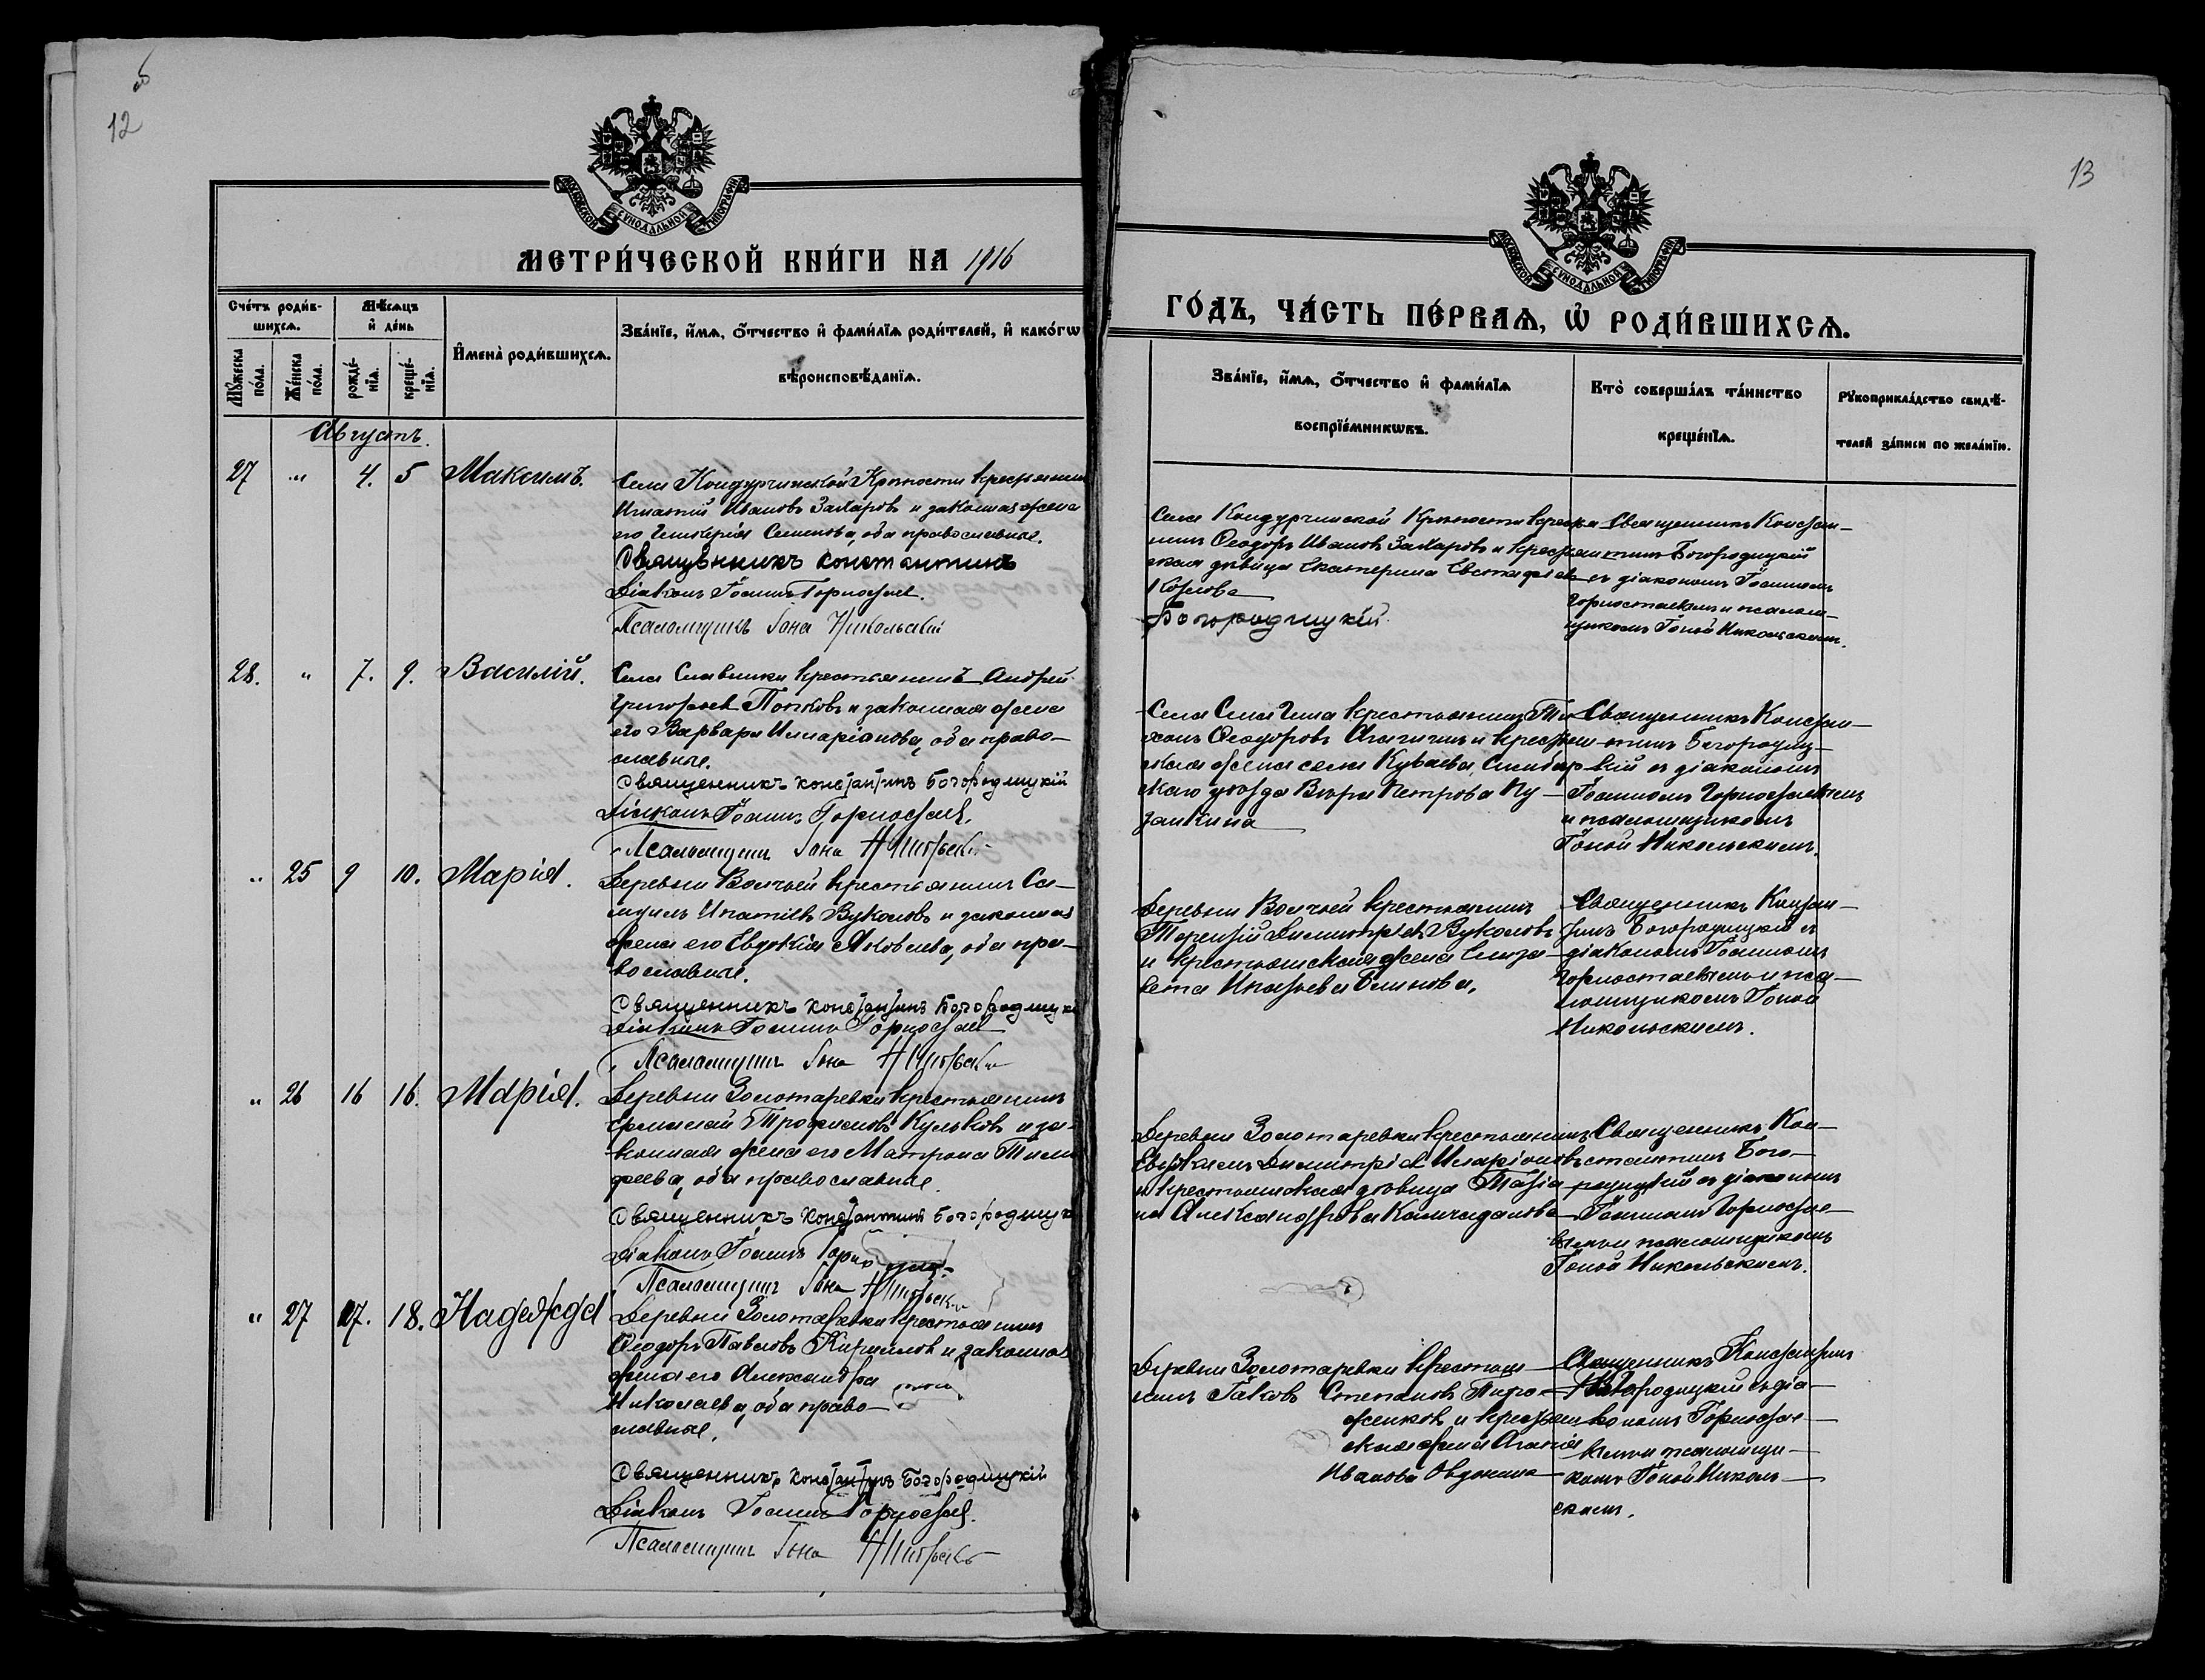 12
МОСКОВСКОЙ СѴНОДАЛЬНОЙ ТИПОГРАФІИ
МЕТРИ́ЧЕСКОЙ КНИ́ГИ НА 1916
Сче́тъ роди́вшихсѧ.
Мѣ́сѧцъ и҆ де́нь
И҆мена̀ роди́вшихсѧ.
Зва́нїе, и҆́мѧ, ѻ҆́тчество и҆ фами́лїѧ роди́телей, и҆ како́гѡ
вѣроисповѣ́данїѧ.
Мꙋ́жеска по́ла.
Же́нска по́ла.
рожде́нїѧ.
креще́нїѧ.
Августъ.
27 " 4. 5 Максимъ.
Села Кондурчинской Крѣпости крестьянинъ
Игнатій Ивановъ Захаровъ и законная жена
его Гликерія Семенова, оба православные.
Священникъ Константинъ
Діаконъ Іоаннъ Горностаев.
Псаломщикъ Іона Никольскій
28. " 7. 9. Василій.
Села Славкина крестьянинъ Андрей
Григорьев Попковъ и законная жена
его Варвара Иларіонова, оба право-
славные.
Священникъ Константинъ Богородицкій
Діаконъ Іоаннъ Горностаев.
Псаломщикъ Іона Никольскій
" 25 9 10. Марія.
Деревни Волчьей крестьянинъ Са-
муилъ Ипатіев Вуколовъ и законная
жена его Евдокія Яковлева, оба пра-
вославные.
Священникъ Константинъ Богородицкій
Діаконъ Іоаннъ Горностаев
Псаломщикъ Іона Никольскій
" 26 16 16. Марія.
Деревни Золотаревки крестьянинъ
Ермолай Трофимовъ Кульков и за-
конная жена его Матрона Тимо
феева, оба православные.
Священникъ Константинъ Богородицк
Діаконъ Іоаннъ Горно
Псаломщикъ Іона Никольскій
" 27 17. 18. Надежда
Деревни Золотаревки крестьянинъ
Ѳеодоръ Павловъ Кирилловъ и законная
жена его Александра
Николаева, оба право-
славные.
Священникъ Константинъ Богородицкій
Діаконъ Іоаннъ Горностаев.
Псаломщикъ Іона Никольскій
13
МОСКОВСКОЙ СѴНОДАЛЬНОЙ ТИПОГРАФІИ
ГО́ДЪ, ЧА́СТЬ ПЕ́РВАѦ, Ѡ҆ РОДИ́ВШИХСѦ.
Зва́нїе, и҆́мѧ, ѻ҆́тчество и҆ фами́лїѧ
воспрїе́мникѡвъ.
Кто̀ соверша́лъ та́инство
креще́нїѧ.
Рꙋкоприкла́дство свидѣ́-
телей за́писи по жела́нїю.
Села Кондурчинской Крѣпости крестья
нинъ Ѳеодоръ Ивановъ Захаровъ и крестьян
ская дѣвица Екатерина Евстафіев
Козлова
Богородицкій
Священникъ Констан-
тинъ Богородицкій
съ діакономъ Іоанномъ
Горностаевымъ и псалом-
щикомъ Іоной Никольскимъ.
крестьянинъ Ти
хонъ Ѳеодоровъ и крестьян
ская жена села Куваева, Симбир
скаго уѣзда Вѣра Петрова Ку-
занкина
Священникъ Констан-
тинъ Богородиц-
кій съ діакономъ
Іоанномъ Горностаевымъ
и псаломщикомъ
Іоной Никольскимъ.
Деревни Волчьей крестьянинъ
Терентій Димитріев Вуколовъ
и крестьянская жена Елиза-
вета Игнатьева Блинова.
Священникъ Констан-
тинъ Богородицкій съ
діакономъ Іоанномъ
Горностаевымъ и пса-
ломщикомъ Іоной
Никольскимъ.
Деревни Золотаревки крестьянинъ
Евфимъ Димитріев Иларіоновъ
и крестьянская дѣвица Татіа
на Александрова Калмадамова
Священникъ Кон-
стантинъ Бого-
родицкій съ діакономъ
Іоанномъ Горноста-
евымъ и псаломщикомъ
Іоной Никольскимъ.
Деревни Золотаревки крестья-
нинъ Іаковъ Степановъ Пиро-
женков и крестьян
ская жена Агапія
Иванова Овдокина
Священникъ Константинъ
Богородицкій съ діа-
кономъ Горноста-
евымъ и псаломщи-
комъ Іоной Николь-
скимъ.